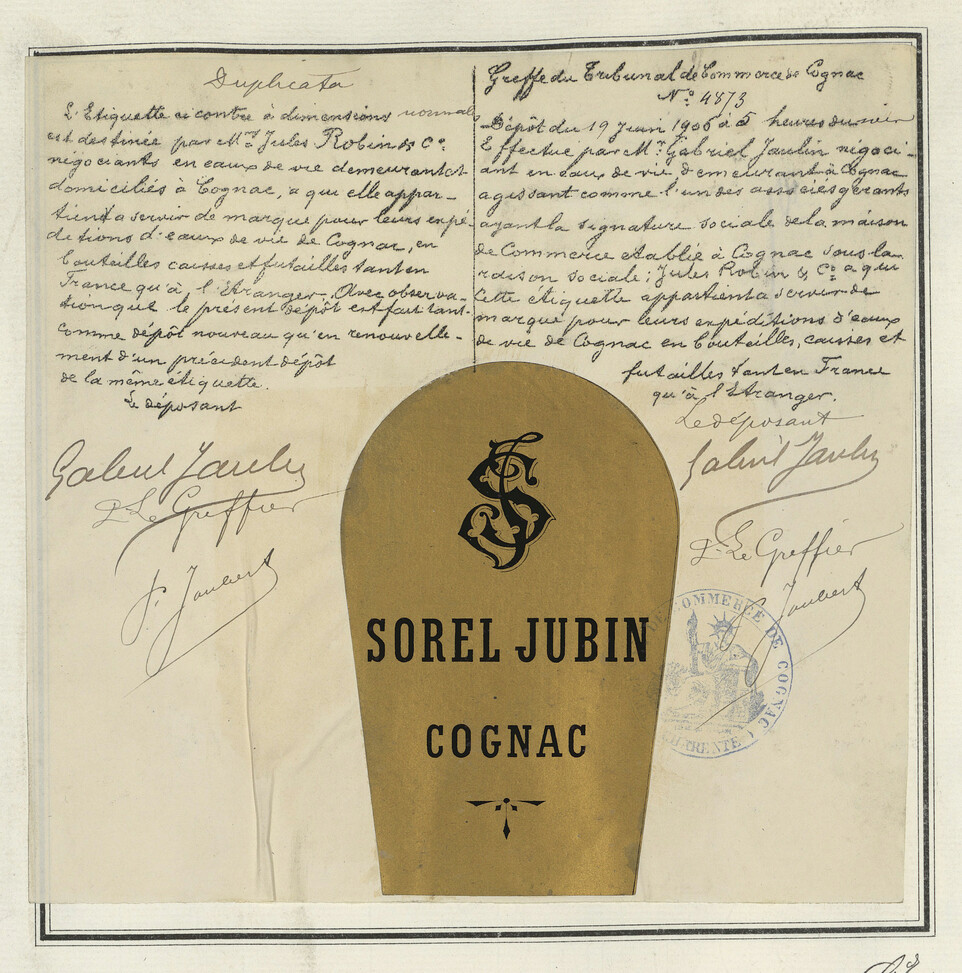 Duplicata
L'Etiquette ci contre à dimensions normal
est destinée par M.rs Jules Robin & C.o
négociants en eaux de vie demeurant et
domiciliés à Cognac, a qui elle appar-
tient a servir de marque pour leurs expé-
ditions d'eaux de vie de Cognac, en
bouteilles caisses et futailles tant en
France qu'à l'étranger. Avec observa-
tion que le présent dépôt est fait tant
comme dépôt nouveau qu'en renouvelle-
ment d'un précédent dépôt
de la même étiquette.
Le déposant
Gabriel Jaulin
P. Le Greffier
J. Joubert
Greffe du Tribunal de Commerce de Cognac
N.o 4873
Dépôt du 19 Juin 1906 à 5 heures du soir
Effectué par M.r Gabriel Jaulin négoci-
ant en eaux de vie, demeurant à Cognac
agissant comme l'un des associés gérants
ayant la signature sociale de la maison
de Commerce établie à Cognac sous la
raison sociale; Jules Robin & C.o a qui
cette étiquette appartient a servir de
marque pour leurs expéditions d'eaux
de vie de Cognac en bouteilles, caisses et
futailles tant en France
qu'à l'Etranger.
Le déposant
Gabriel Jaulin
P. Le Greffier
J. Joubert
SJ
SOREL JUBIN
COGNAC
DE COMMERCE DE COGNAC
CHARENTE